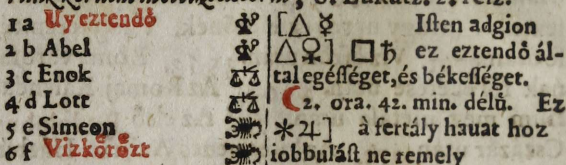 1 a Uy eztendő ♐ [△ ☿ Iſten adgion
2 b Abel ♐ △ ♀] □ ♄ ez eztendő ál-
3 c Enok ♎ tal egéſſéget, és békeſſéget.
4 d Lott ♎ ☾ 2. ora. 42. min. délů. Ez
5 e Simeon ♏ ✶ ♃] à fertály hauat hoz
6 f Vizkőrőzt ♏ iobbuláſt ne remely